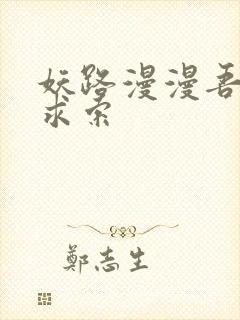 妖路漫漫吾
求索
鄭志生